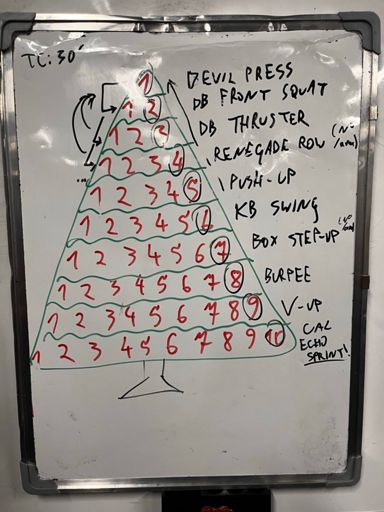 TC: 30'
1 DEVIL PRESS
1 2 DB FRONT SQUAT
1 2 3 DB THRUSTER
1 2 3 4 RENEGADE ROW
1 2 3 4 5 PUSH-UP
1 2 3 4 5 6 KB SWING
1 2 3 4 5 6 7 BOX STEP-UP
1 2 3 4 5 6 7 8 BURPEE
1 2 3 4 5 6 7 8 9 V-UP
1 2 3 4 5 6 7 8 9 10 CAL
ECHO
SPRINT!